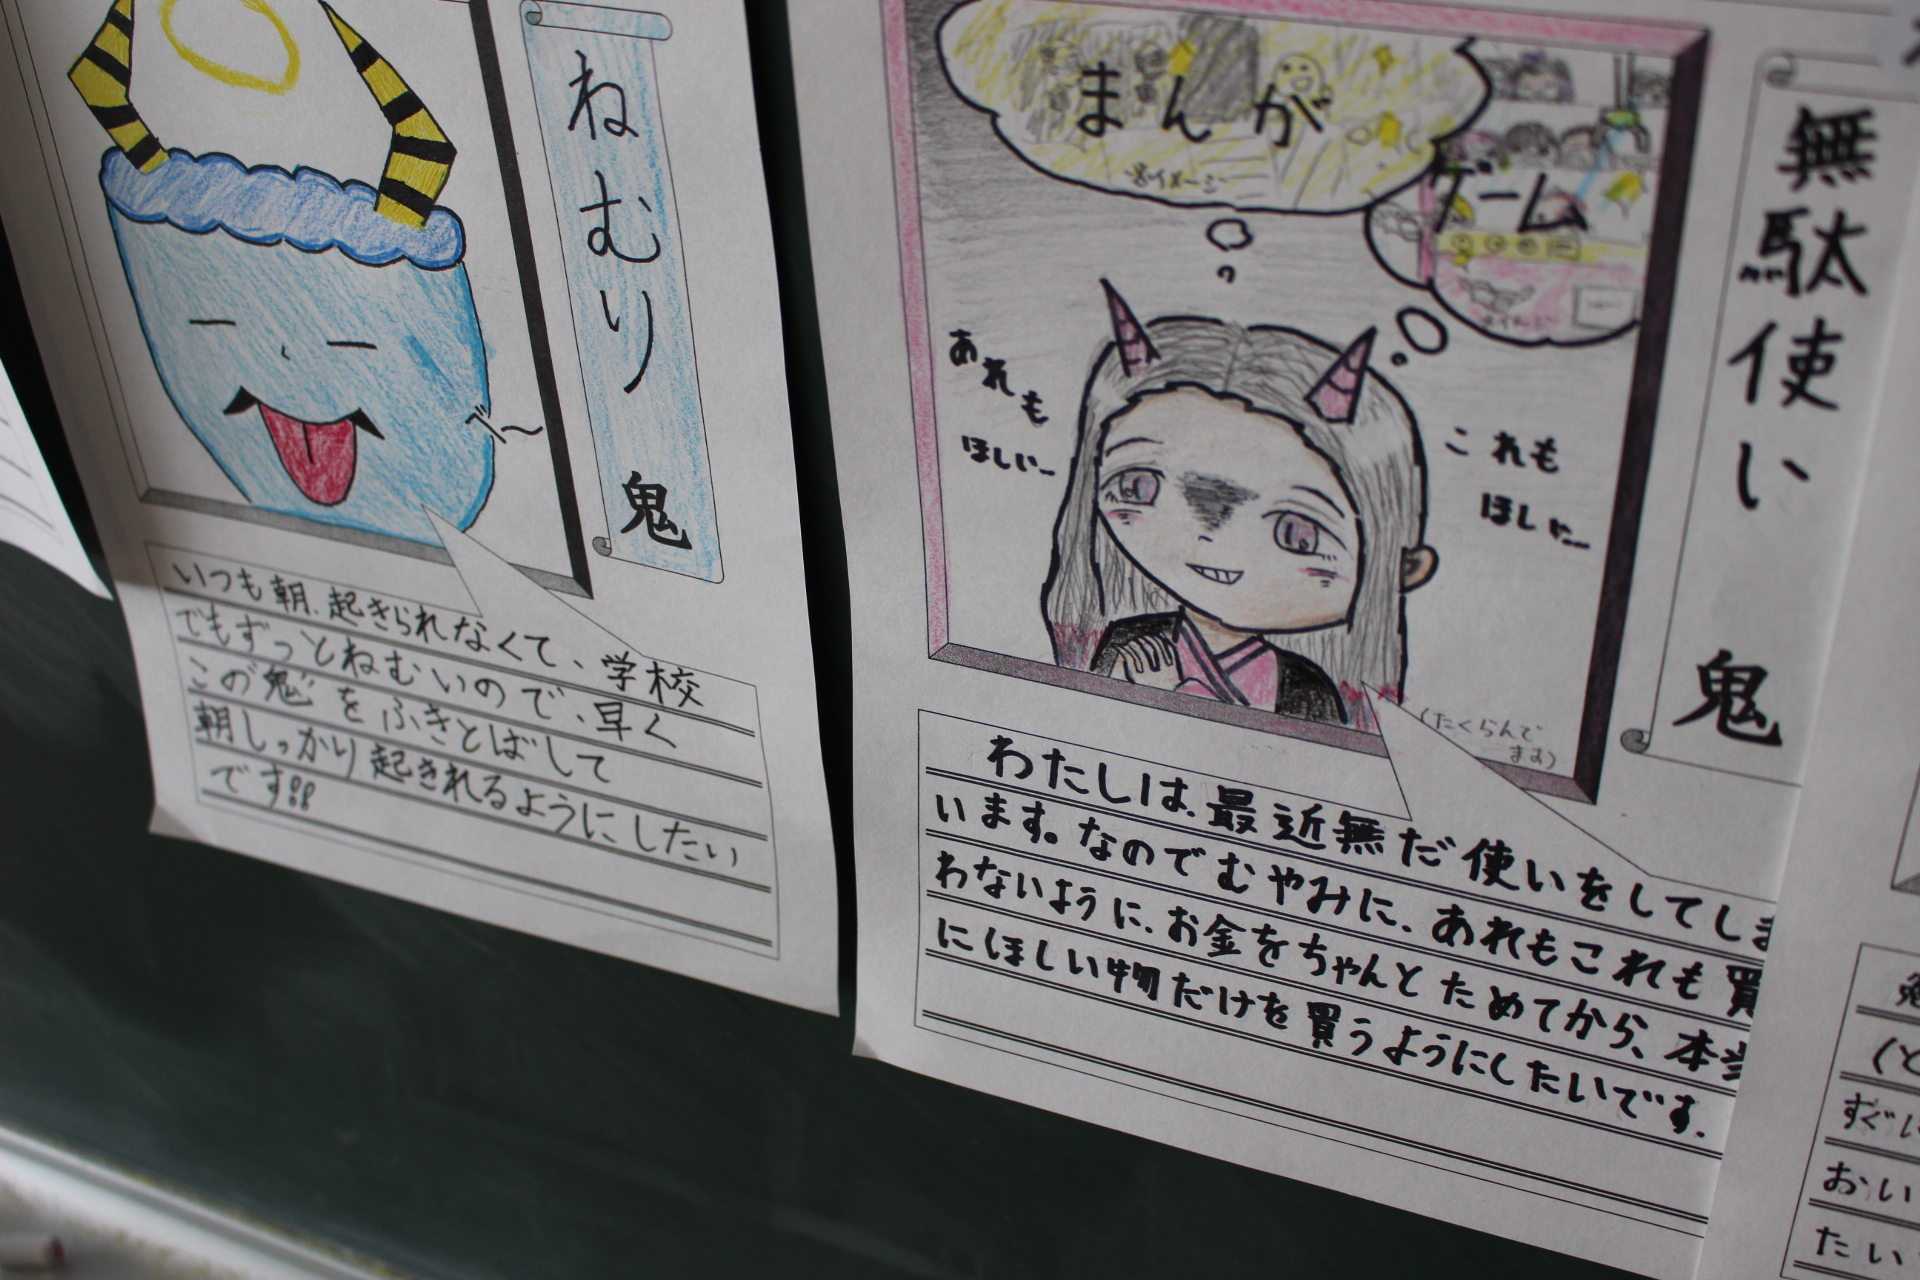 ねむり 鬼
いつも朝、起きられなくて、学校
でもずっとねむいので、早く
この"鬼"をふきとばして
朝しっかり起きれるようにしたい
です!!
まんが
※イメージ
ゲーム
あれも
ほしいー
これも
ほしいー
(たくらんで
ます)
無駄使い 鬼
わたしは、最近無だ使いをしてしま
います。なのでむやみに、あれもこれも買
わないように、お金をちゃんとためてから、本当
にほしい物だけを買うようにしたいです。
(と
すぐに
おい
たい